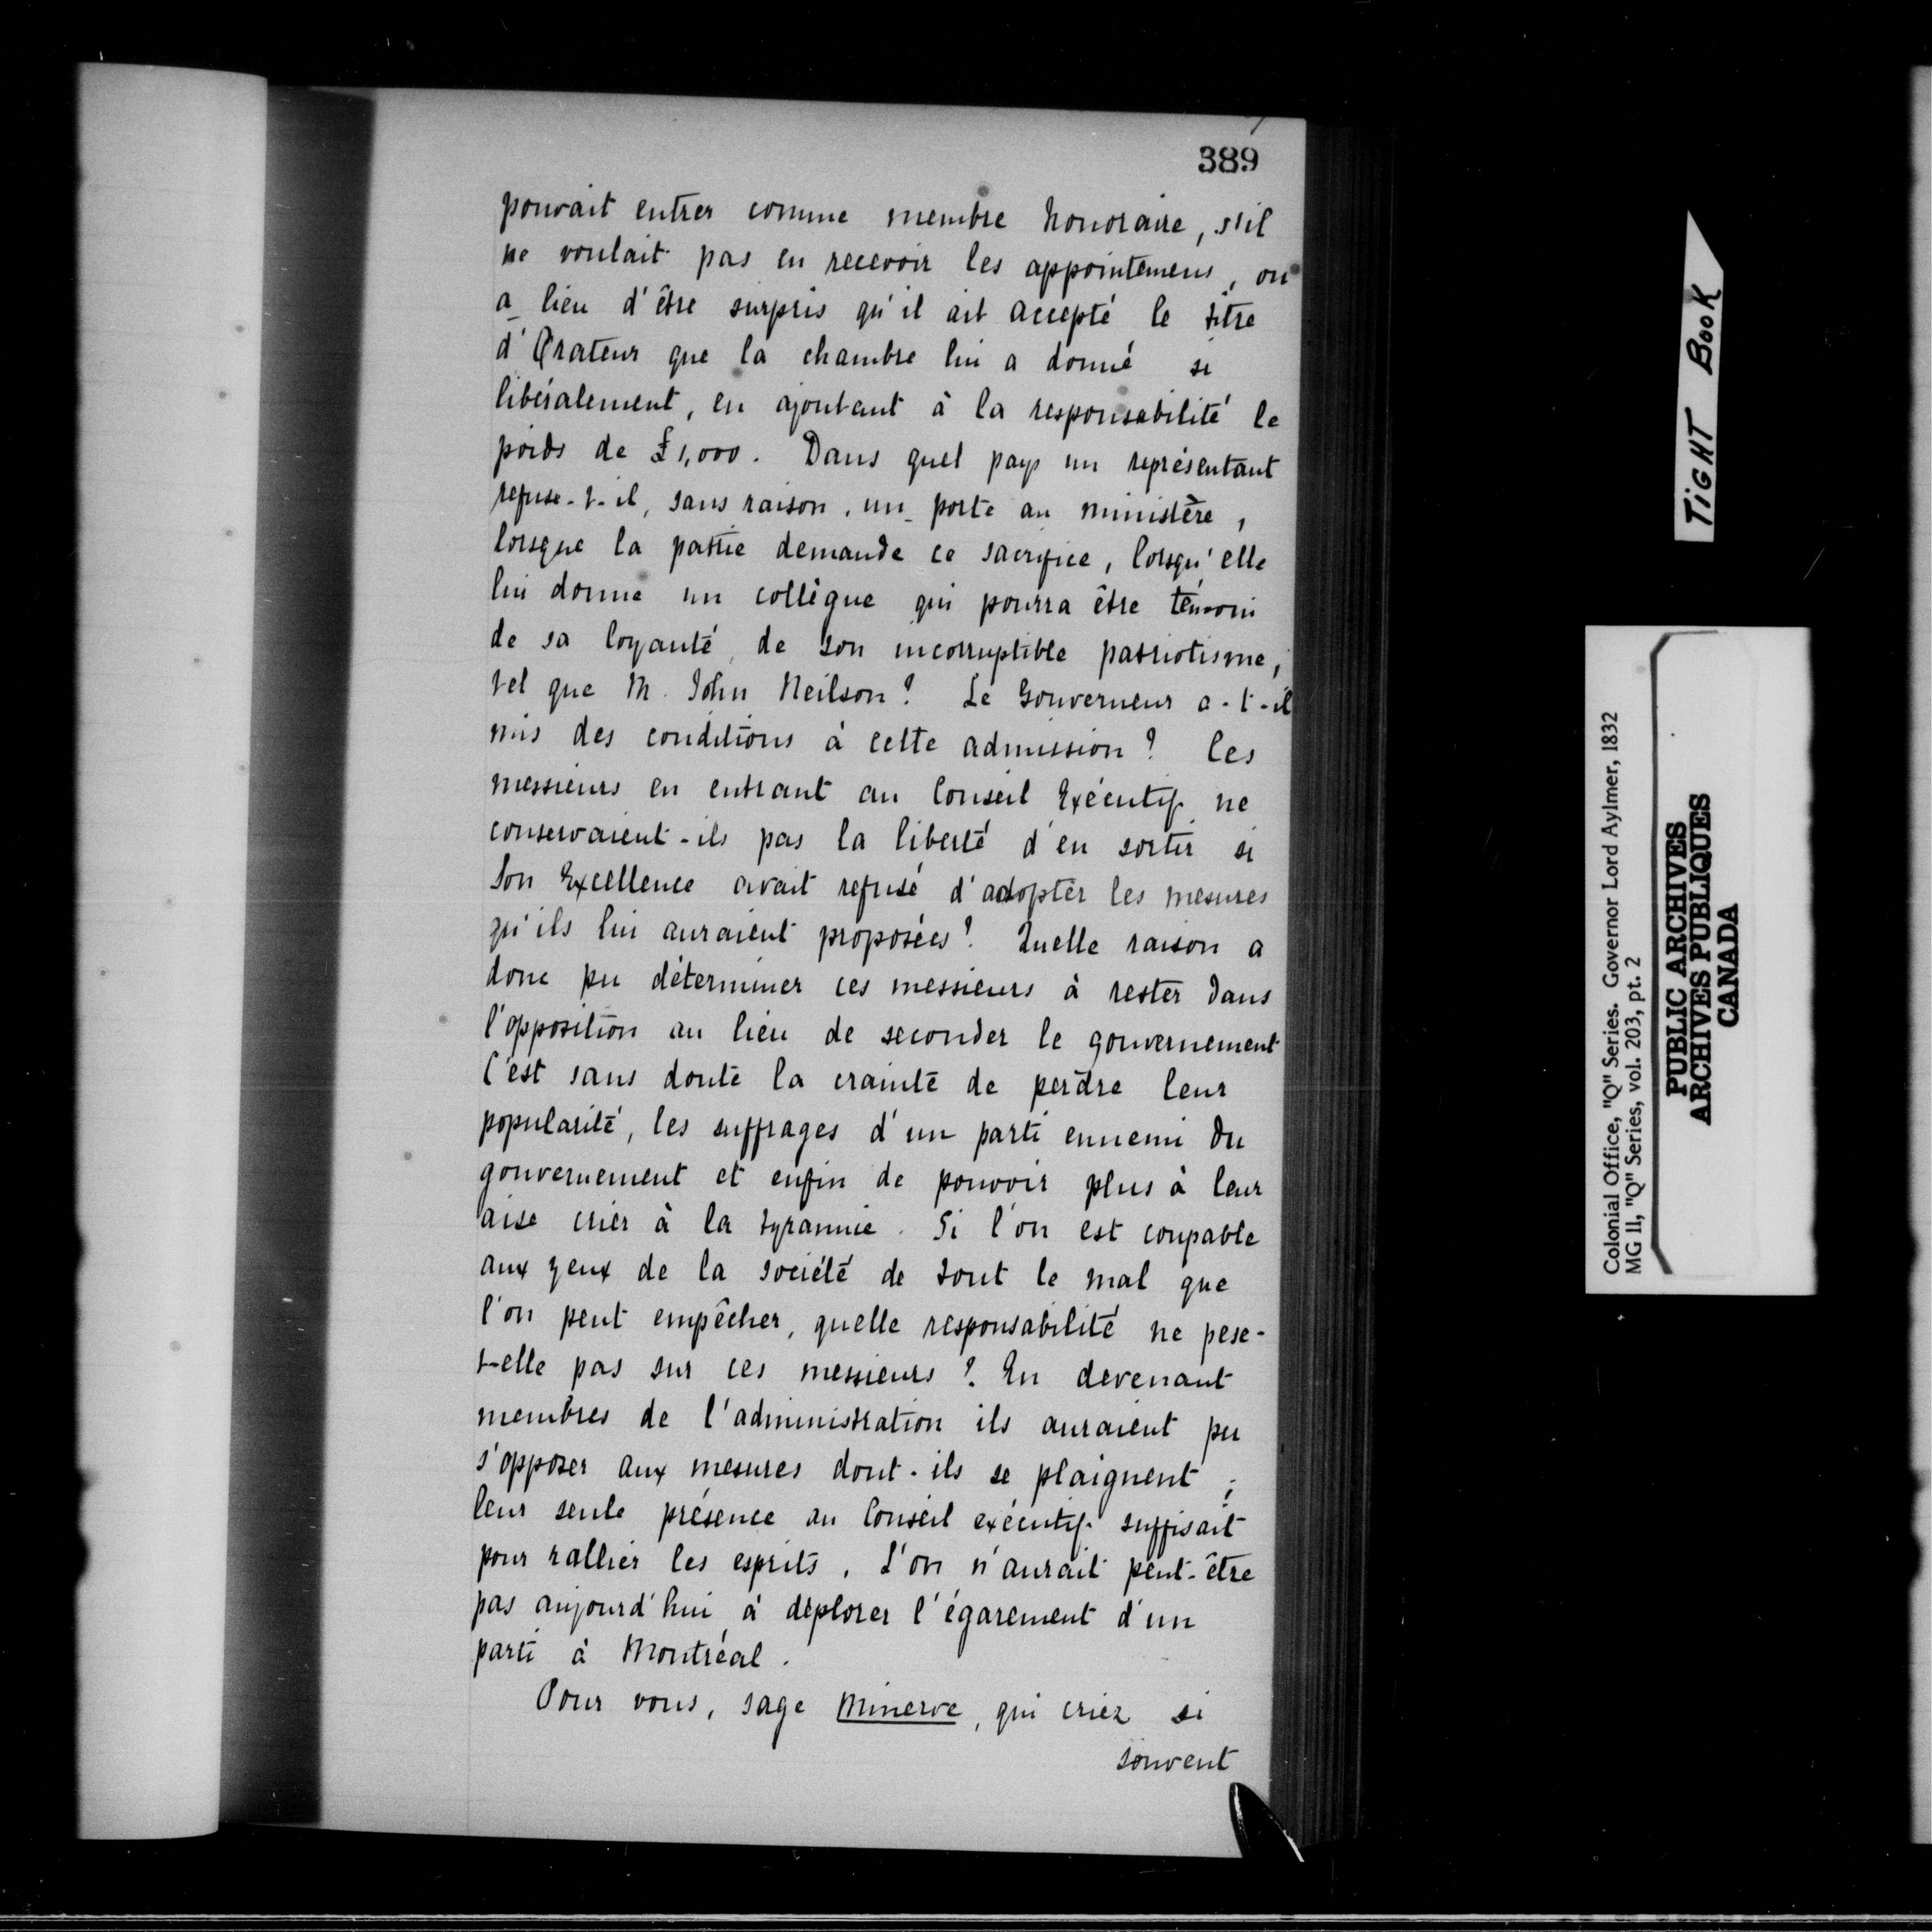 389
pouvait entrer comme membre honoraire, s'il
ne voulait pas en recevoir les appointemens, on
a lieu d'être surpris qu'il ait accepté le titre
d'Orateur que la chambre lui a donné si
libéralement, en ajoutant à la responsabilité le
poids de £1,000. Dans quel pays un représentant
refuse-t-il, sans raison, un poste au ministère,
lorsque la patrie demande ce sacrifice, lorsqu'elle
lui donne un collègue qui pourra être témoin
de sa loyauté, de son incorruptible patriotisme,
tel que M. John Neilson? Le Gouverneur a-t-il
mis des conditions à cette admission? Ces
messieurs en entrant au Conseil Exécutif ne
conservaient-ils pas la liberté d'en sortir si
Son Excellence avait refusé d'adopter les mesures
qu'ils lui auraient proposées? Quelle raison a
donc pu déterminer ces messieurs à rester dans
l'opposition au lieu de seconder le gouvernement
C'est sans doute la crainte de perdre leur
popularité, les suffrages d'un parti ennemi du
gouvernement et enfin de pouvoir plus à leur
aise crier à la tyrannie. Si l'on est coupable
aux yeux de la société de tout le mal que
l'on peut empêcher, quelle responsabilité ne pese-
t-elle pas sur ces messieurs? En devenant
membres de l'administration ils auraient pu
s'opposer aux mesures dont-ils se plaignent;
leur seule présence au Conseil exécutif suffisait
pour rallier les esprits. L'on n'aurait peut-être
pas aujourd'hui à déplorer l'égarement d'un
parti à Montréal.
Pour vous, sage Minerve, qui criez si
souvent
TIGHT BOOK
Colonial Office, "Q" Series. Governor Lord Aylmer, 1832
MG 11, "Q" Series, vol. 203, pt. 2
PUBLIC ARCHIVES
ARCHIVES PUBLIQUES
CANADA